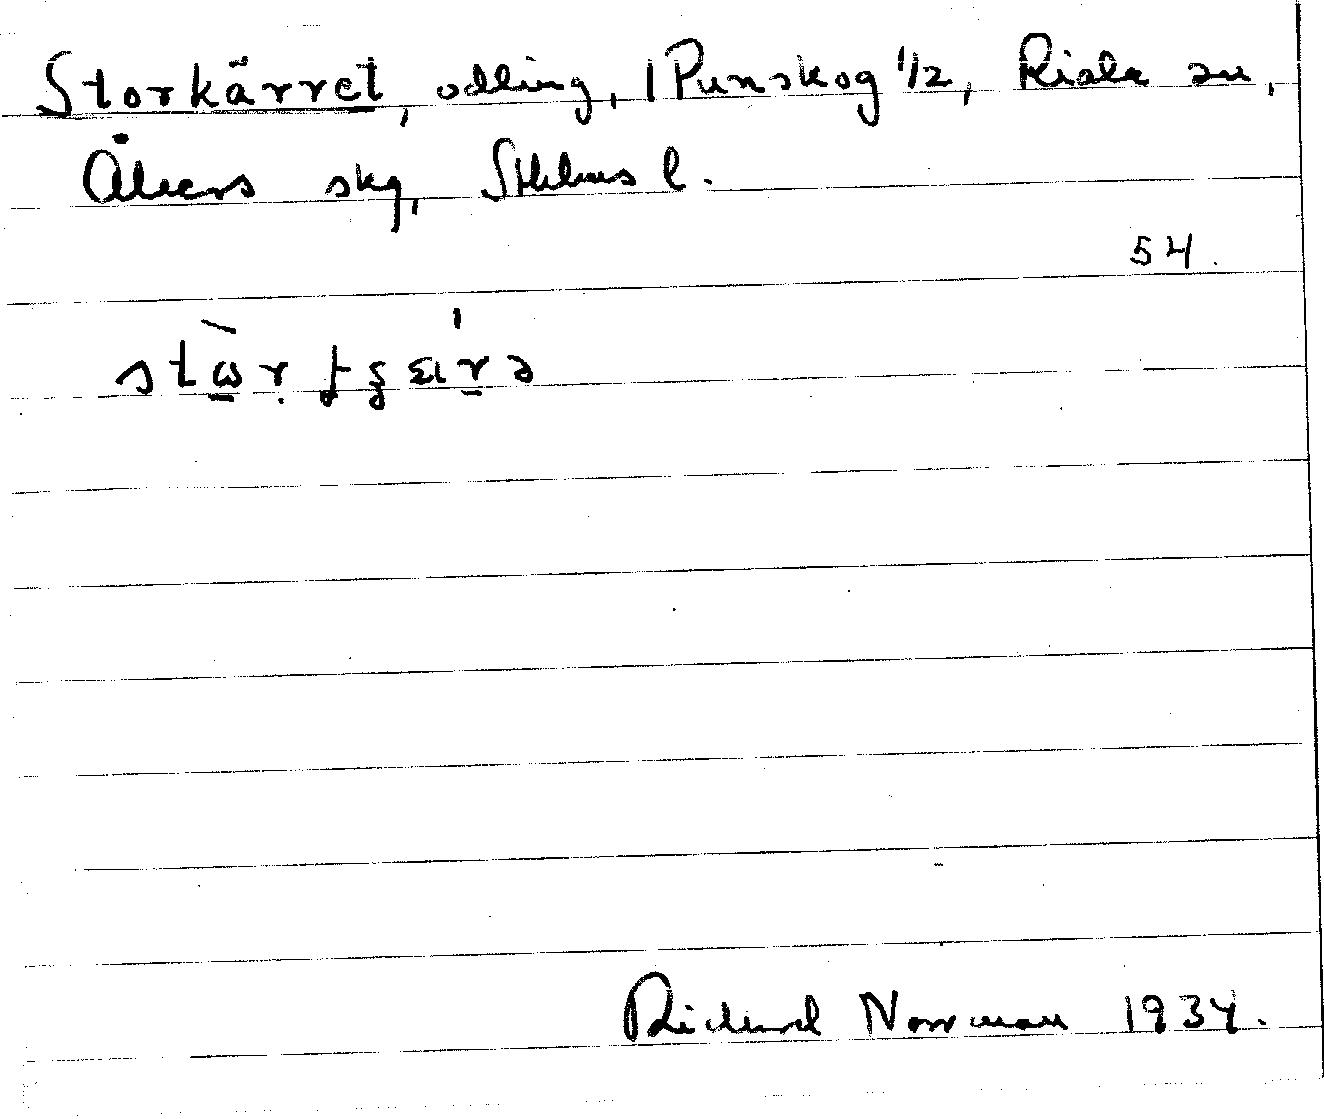 Storkärret, odling, 1 Punskog 1/2, Riala sn,
Åkers skg, Sthlms l.
54.
Richard Norrman 1934.